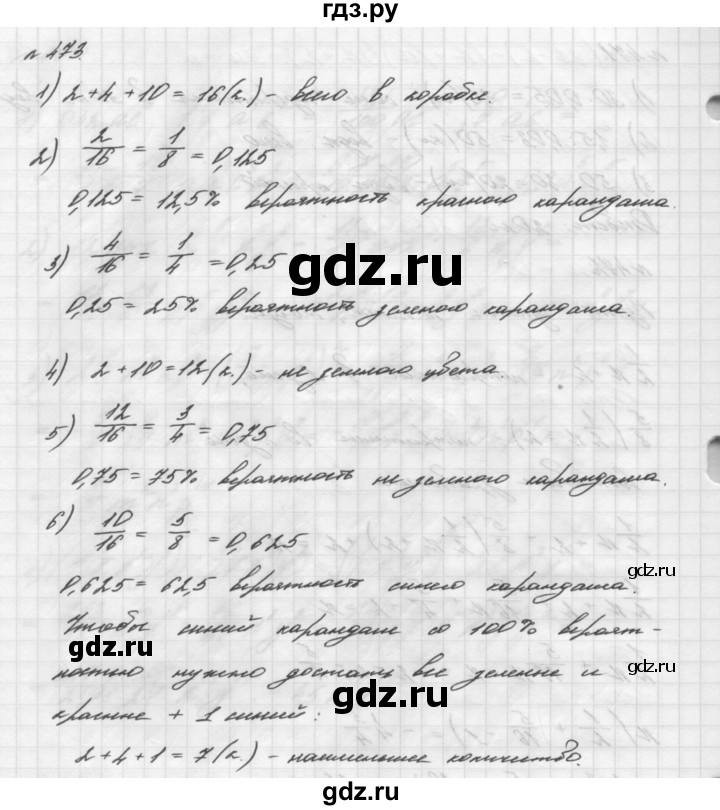 гдз.ру
№ 473
1) 2+4+10 = 16(к.) - всего в коробке.
2) 2/16 = 1/8 = 0,125
0,125 = 12,5% вероятность красного карандаша.
3) 4/16 = 1/4 = 0,25
gdz.ru
0,25 = 25% вероятность зеленого карандаша.
4) 2+10=12(к.) - не зеленого цвета.
5) 12/16 = 3/4 = 0,75
0,75 = 75% вероятность не зеленого карандаша.
6) 10/16 = 5/8 = 0,625
gdz.ru
0,625 = 62,5 вероятность синего карандаша.
Чтобы синий карандаш со 100% вероят-
gdz.ru
ностью нужно достать все зеленые и
gdz.ru
gdz.ru
красные + 1 синий:
2+4+1 = 7(к.) - наименьшее количество.
gdz.ru